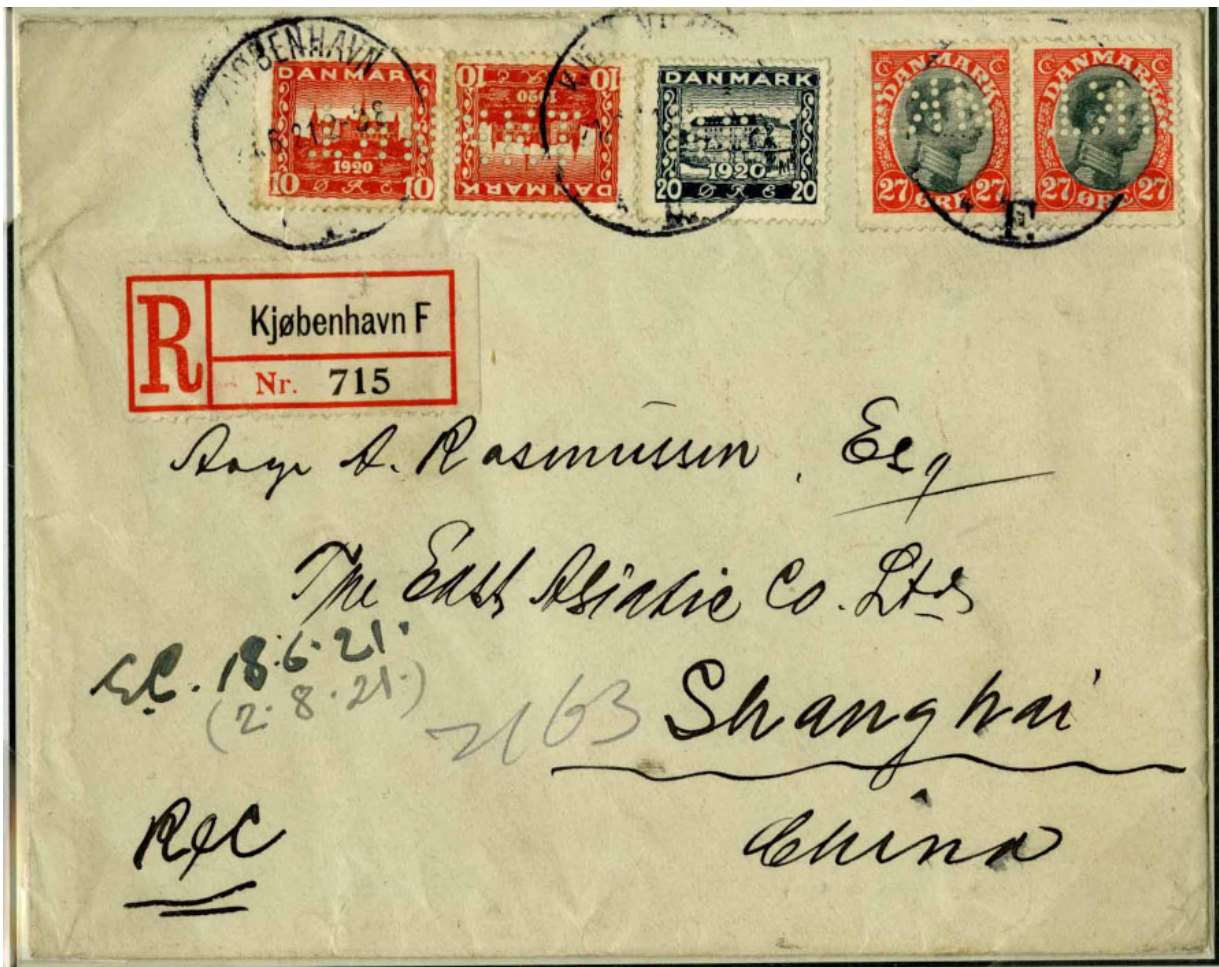 KJØBENHAVN
6.21.2-
F.
DANMARK
1920
10 ØRE 10
DANMARK
1920
10 10
DANMARK
1920
20 ØRE 20
DANMARK
27 ØRE 27
DANMARK
27 ØRE 27
F.
R
Kjøbenhavn F
Nr. 715
Aage A. Rasmussen, Esq
The East Asiatic Co. Ltd
E.C. 18.6.21.
(2.8.21.)
Shanghai
China
Rec